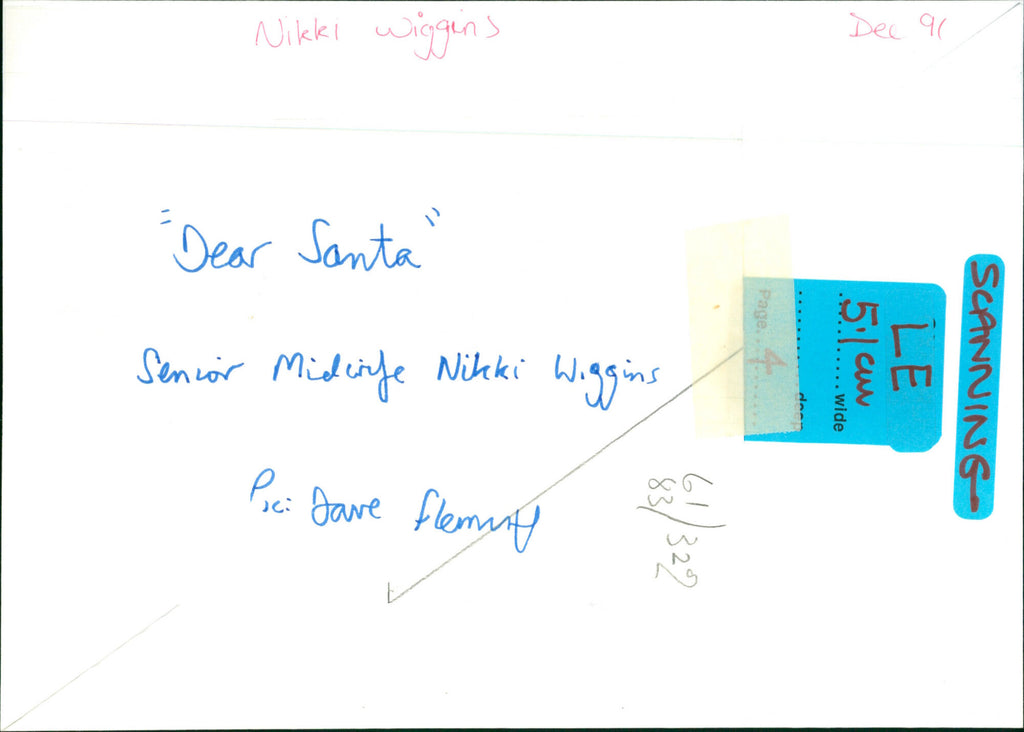 Nikki Wiggins
Dec 91
"Dear Santa"
Senior Midwife Nikki Wiggins
Pic: Dave Fleming
LE
5.1cm
wide
deep
Page 4
SCANNING
61/329
83/